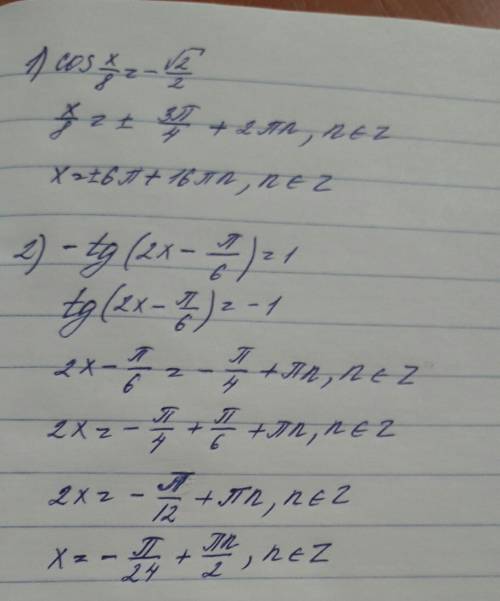 1) cos x/8 = - √2/2
x/8 = ± 3π/4 + 2πn, n ∈ Z
x = ±6π + 16πn, n ∈ Z
2) -tg(2x - π/6) = 1
tg(2x - π/6) = -1
2x - π/6 = - π/4 + πn, n ∈ Z
2x = - π/4 + π/6 + πn, n ∈ Z
2x = - π/12 + πn, n ∈ Z
x = - π/24 + πn/2, n ∈ Z